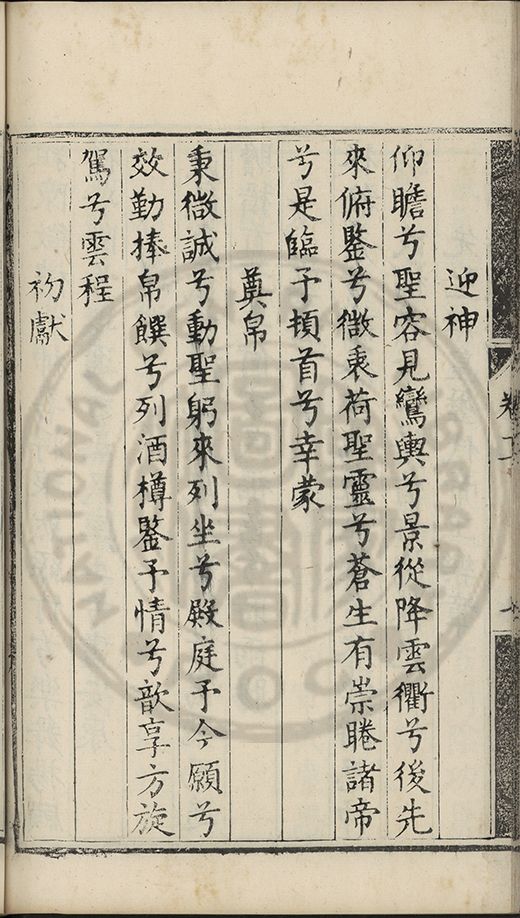 迎神
仰瞻兮聖容見鸞輿兮景從降雲衢兮後先
來俯鑒兮微衷荷聖靈兮蒼生有崇睠諸帝
兮是臨予頓首兮幸蒙
奠帛
秉微誠兮動聖躬來列坐兮殿庭予今願兮
效勤捧帛饌兮列酒樽鑒予情兮歆享方旋
駕兮雲程
初獻